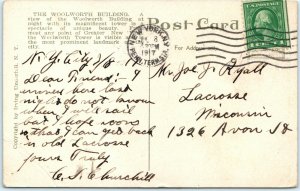 THE WOOLWORTH BUILDING.
view of the Woolworth Building
night with its magnificent tower
spectacle of unique beauty.
most any point of Greater New
the Woolworth Tower is visible
the most prominent landmark
city.
Post Card
For Address
NEW YORK, N.Y.
1917
U.S. POSTAGE
N.Y. City
Dear Friend:- I
arrived here last
night do not know
when I will sail
but I hope soon
so that I can get back
in old Lacrosse
yours Truly
C. S. Churchill
Mr Joe J. Ryall
Lacrosse
Wisconsin
1326 Avon St
Copyrighted by Irving Underhill, N. Y.